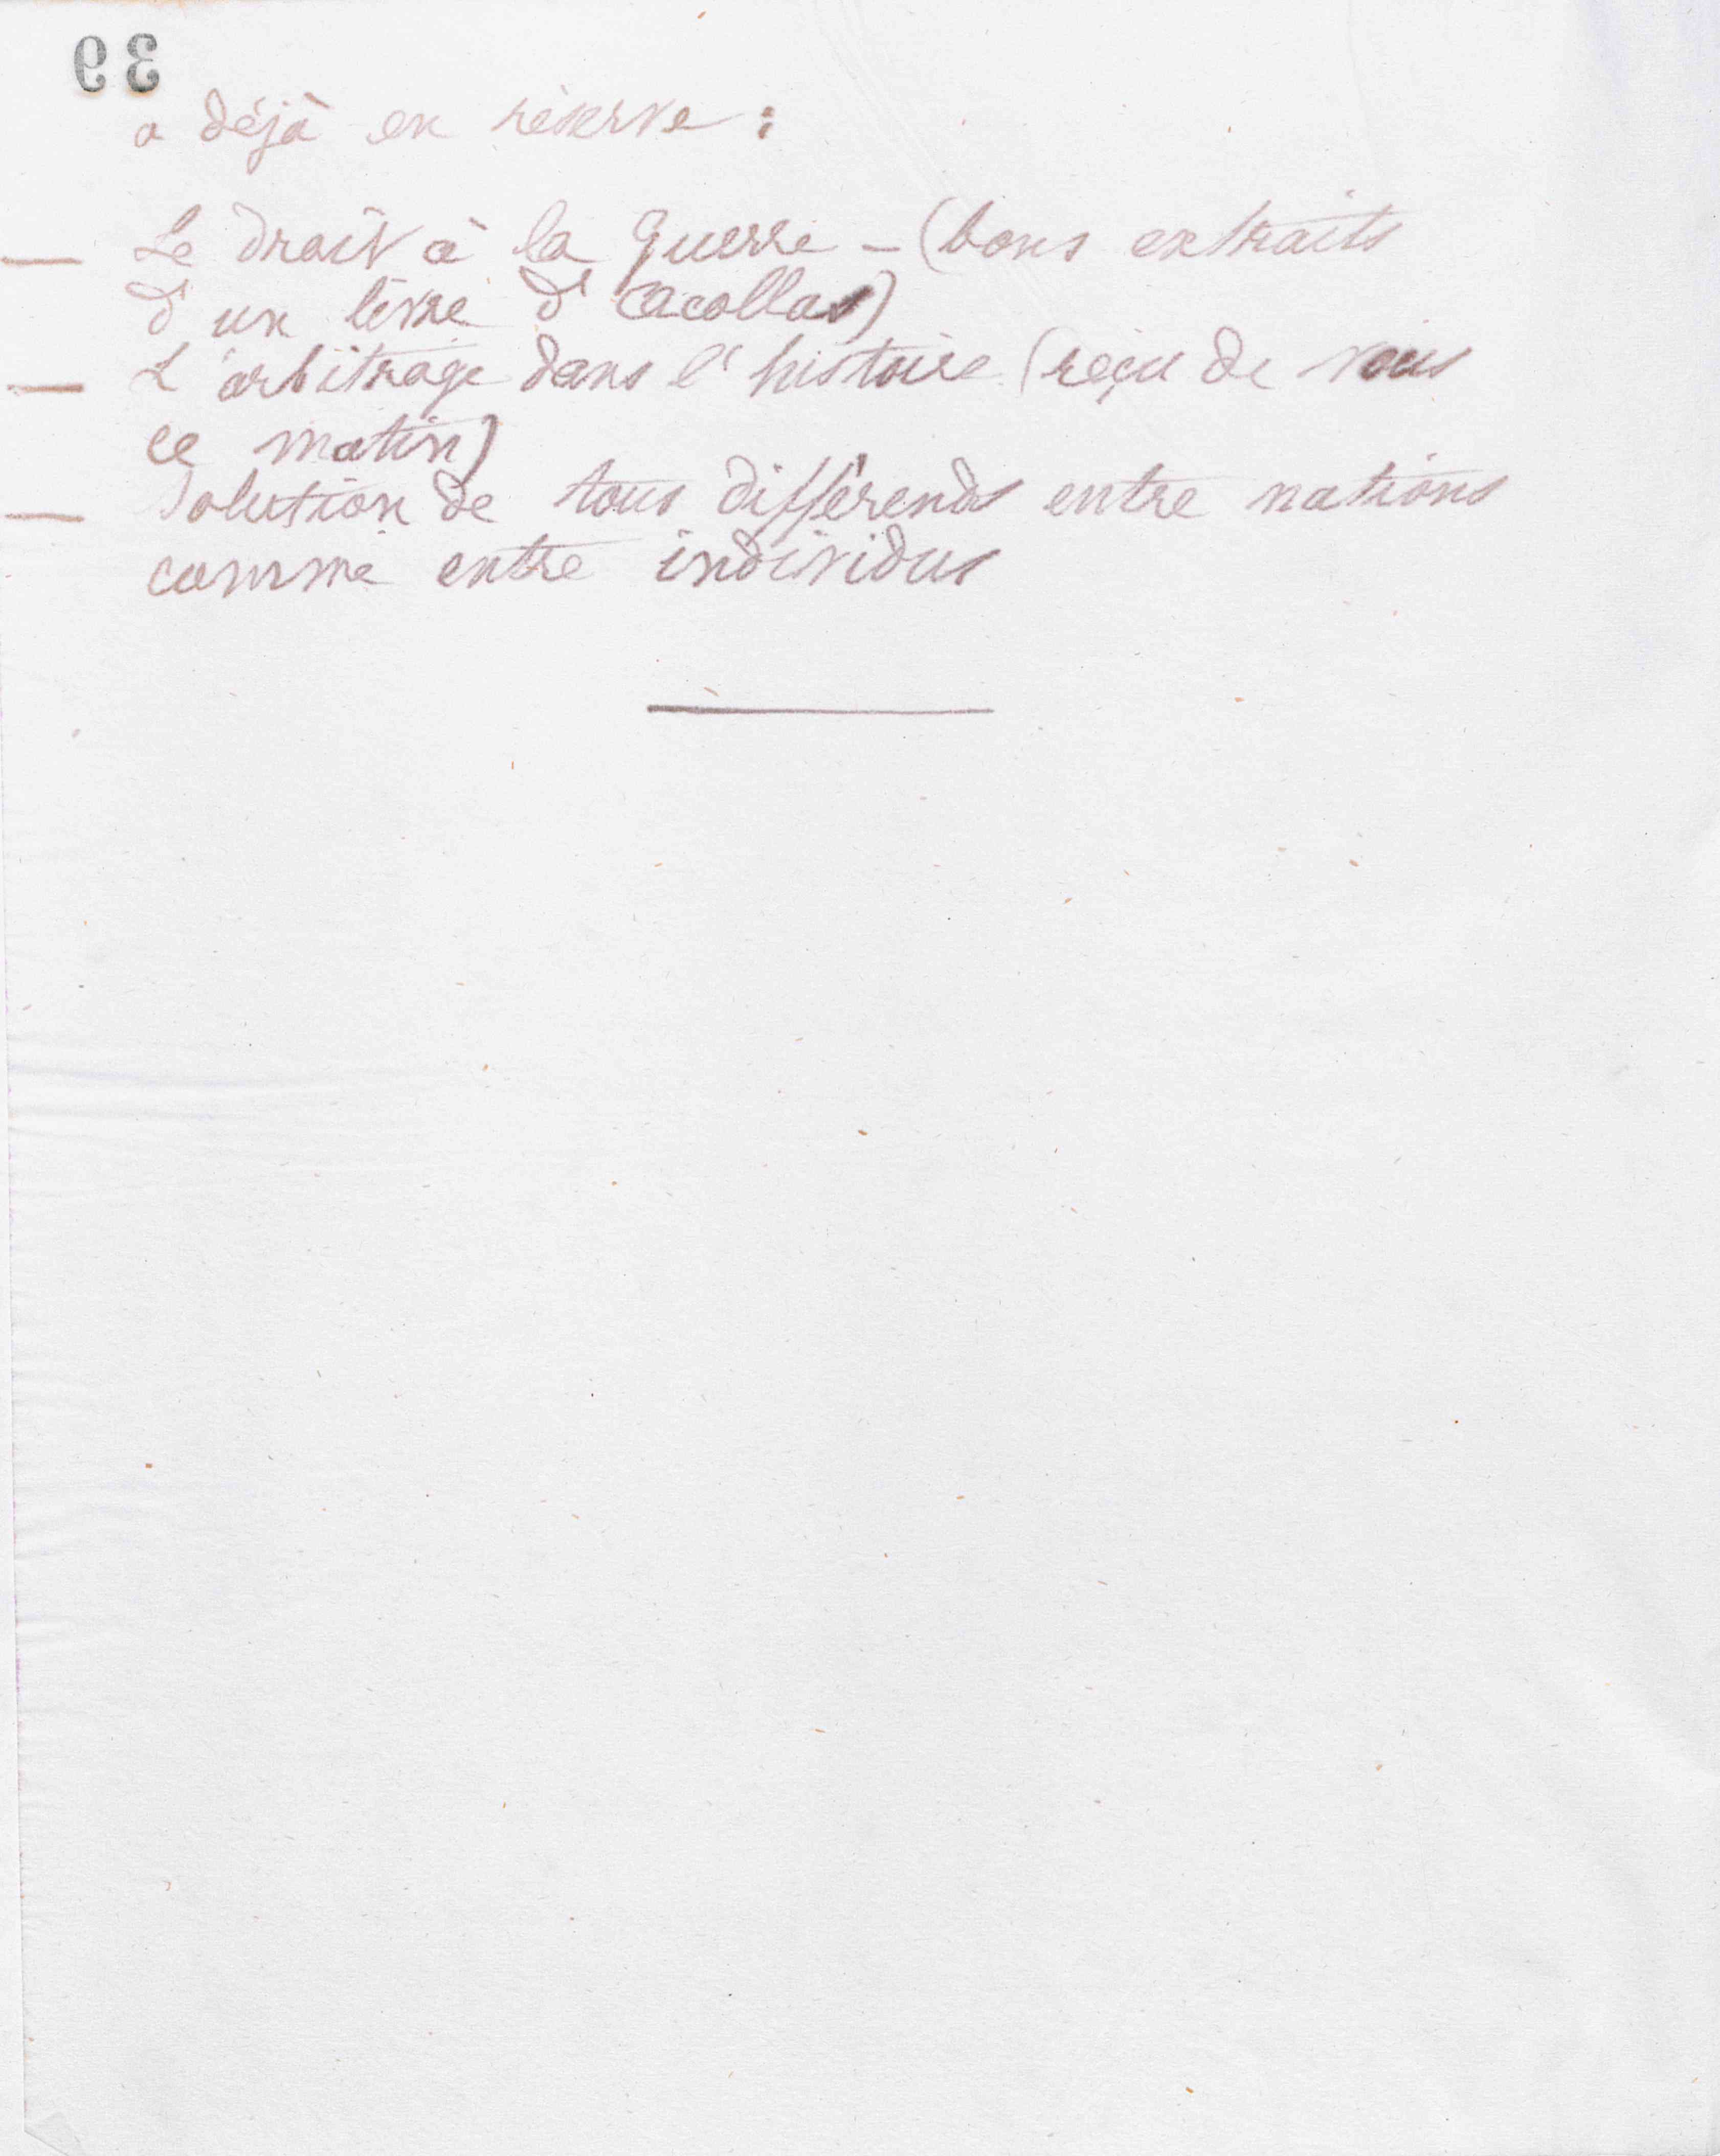 39
a déjà en réserve :
— Le droit à la guerre – (bons extraits
d'un livre d'Acollas)
— L'arbitrage dans l'histoire (reçu de vous
ce matin)
— Solution de tous différends entre nations
comme entre individus